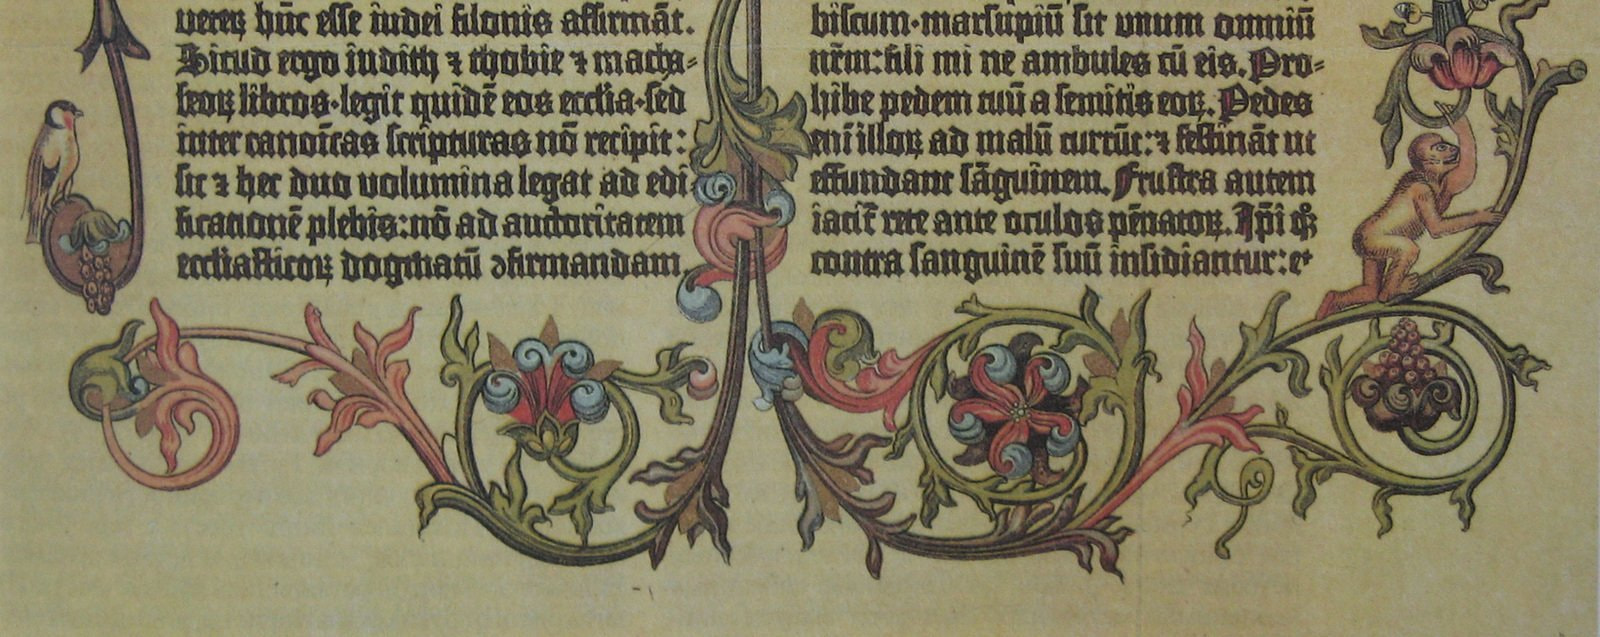 verũ hũc esse iudei filonis affirmãt.
Sicud ergo iudith ⁊ thobie ⁊ macha-
beoꝝ libros·legit quidẽ eos ecclia·sed
inter canoĩcas scripturas nõ recipit:
sic ⁊ hec duo volumina legat ad edi
ficationẽ plebis:nõ ad auctoritatem
ecclĩasticoꝝ dogmatũ ↄfirmandam.
biscum·marsupiũ sit unum omniũ
nr̃m:fili mi ne ambules cũ eis. Pro-
hibe pedem tuũ a semitis eoꝝ. Pedes
eni illoꝝ ad malũ currũt:⁊ festinãt ut
effundant sãguinem. Frustra autem
iacit̃ rete ante oculos pẽnatoꝝ. Ip̃i qꝫ
contra sanguinẽ suũ insidiantur:et